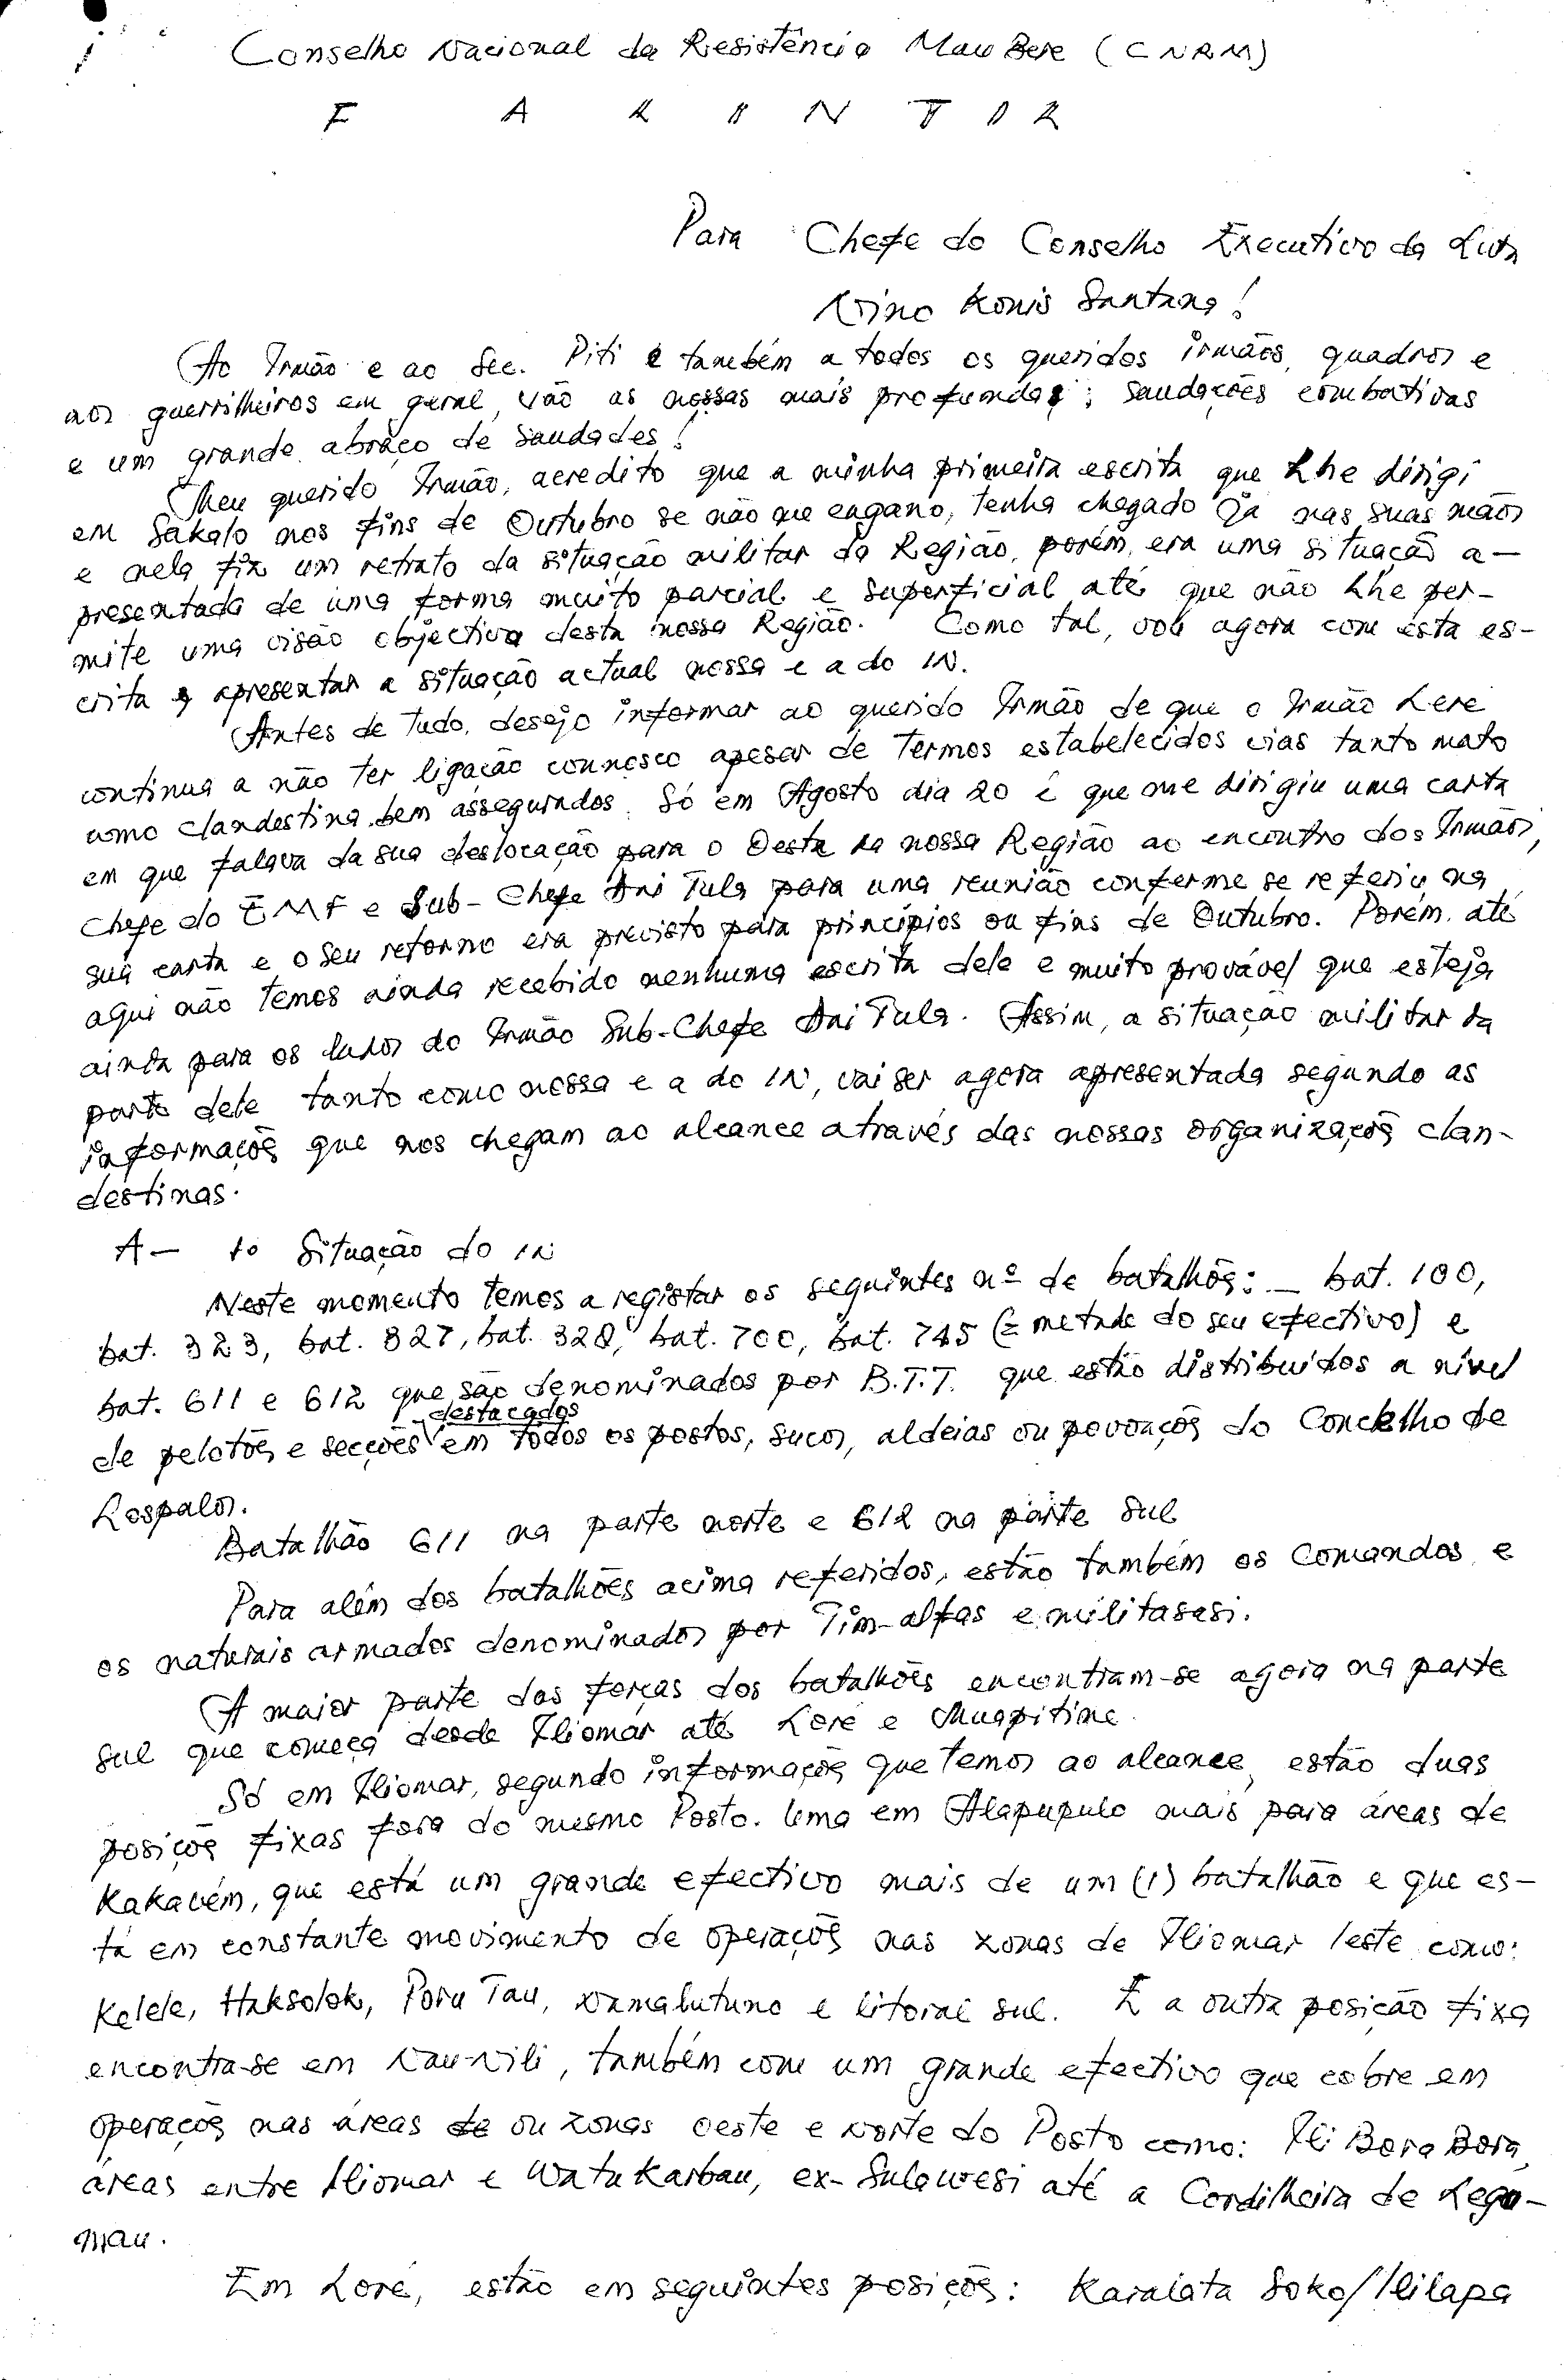 Conselho Nacional da Resistência MauBere (CNRM)
F A L I N T I L
Para Chefe do Conselho Executivo da Luta
Nino Konis Santana!
Ao Irmão e ao Sec. Piti e também a todos os queridos irmãos, quadros e
aos guerrilheiros em geral, vão as nossas mais profundas; saudações combativas
e um grande abraço de saudades!
Meu querido Irmão, acredito que a minha primeira escrita que lhe dirigi
em Sakalo nos fins de Outubro se não me engano, tenha chegado já nas suas mãos
e nela fiz um retrato da situação militar da Região, porém, era uma situação a-
presentada de uma forma muito parcial e superficial até que não lhe per-
mite uma visão objectiva desta nossa Região. Como tal, vou agora com esta es-
crita apresentar a situação actual nossa e a do IN.
Antes de tudo, desejo informar ao querido Irmão de que o Irmão Lere
continua a não ter ligação connosco apesar de termos estabelecidos vias tanto mato
como clandestina bem assegurados. Só em Agosto dia 20 é que me dirigiu uma carta
em que falava da sua deslocação para o Oeste da nossa Região ao encontro dos Irmãos,
Chefe do EMF e Sub-Chefe Tula para uma reunião conforme se referiu na
sua carta e o seu retorno era previsto para princípios ou fins de Outubro. Porém, até
aqui não temos ainda recebido nenhuma escrita dele e muito provável que esteja
ainda para os lados do Irmão Sub-Chefe Tula. Assim, a situação militar da
parte dele tanto como nossa e a do IN, vai ser agora apresentada segundo as
informaçõs que nos chegam ao alcance através das nossas organizaçõs clan-
destinas.
A- 1º Situação do IN
Neste momento temos a registar os seguintes nº de batalhõs: - bat. 100,
bat. 323, bat. 327, bat. 328, bat. 700, bat. 745 (= metade do seu efectivo) e
bat. 611 e 612 que são denominados por B.T.T. que estão distribuidos a nível
destacados
de pelotõs e secções em todos os postos, sucos, aldeias ou povoaçõs do Concelho de
Lospalos.
Batalhão 611 na parte norte e 612 na parte sul
Para além dos batalhões acima referidos, estão também os Comandos e
os naturais armados denominados por Tim-alfas e militasasi.
A maior parte das forças dos batalhões encontram-se agora na parte
sul que começa desde Iliomar até Loré e Muapitine.
Só em Iliomar, segundo informaçõs que temos ao alcance, estão duas
posiçõs fixas fora do mesmo Posto. Uma em Alapupulo mais para áreas de
Kakavém, que está um grande efectivo mais de um (1) batalhão e que es-
tá em constante movimento de operaçõs nas zonas de Iliomar leste como:
Kelele, Haksolok, Poru Tau, Namalutuno e litoral sul. E a outra posição fixa
encontra-se em Nau-Nili, também com um grande efectivo que cobre em
operaçõs nas áreas de ou zonas oeste e norte do Posto como: Ili Bera Bera,
áreas entre Iliomar e Watukarbau, ex-Sulawesi até a Cordilheira de Lego-
mau.
Em Loré, estão em seguintes posiçõs: Karalata Soko/Ililapa